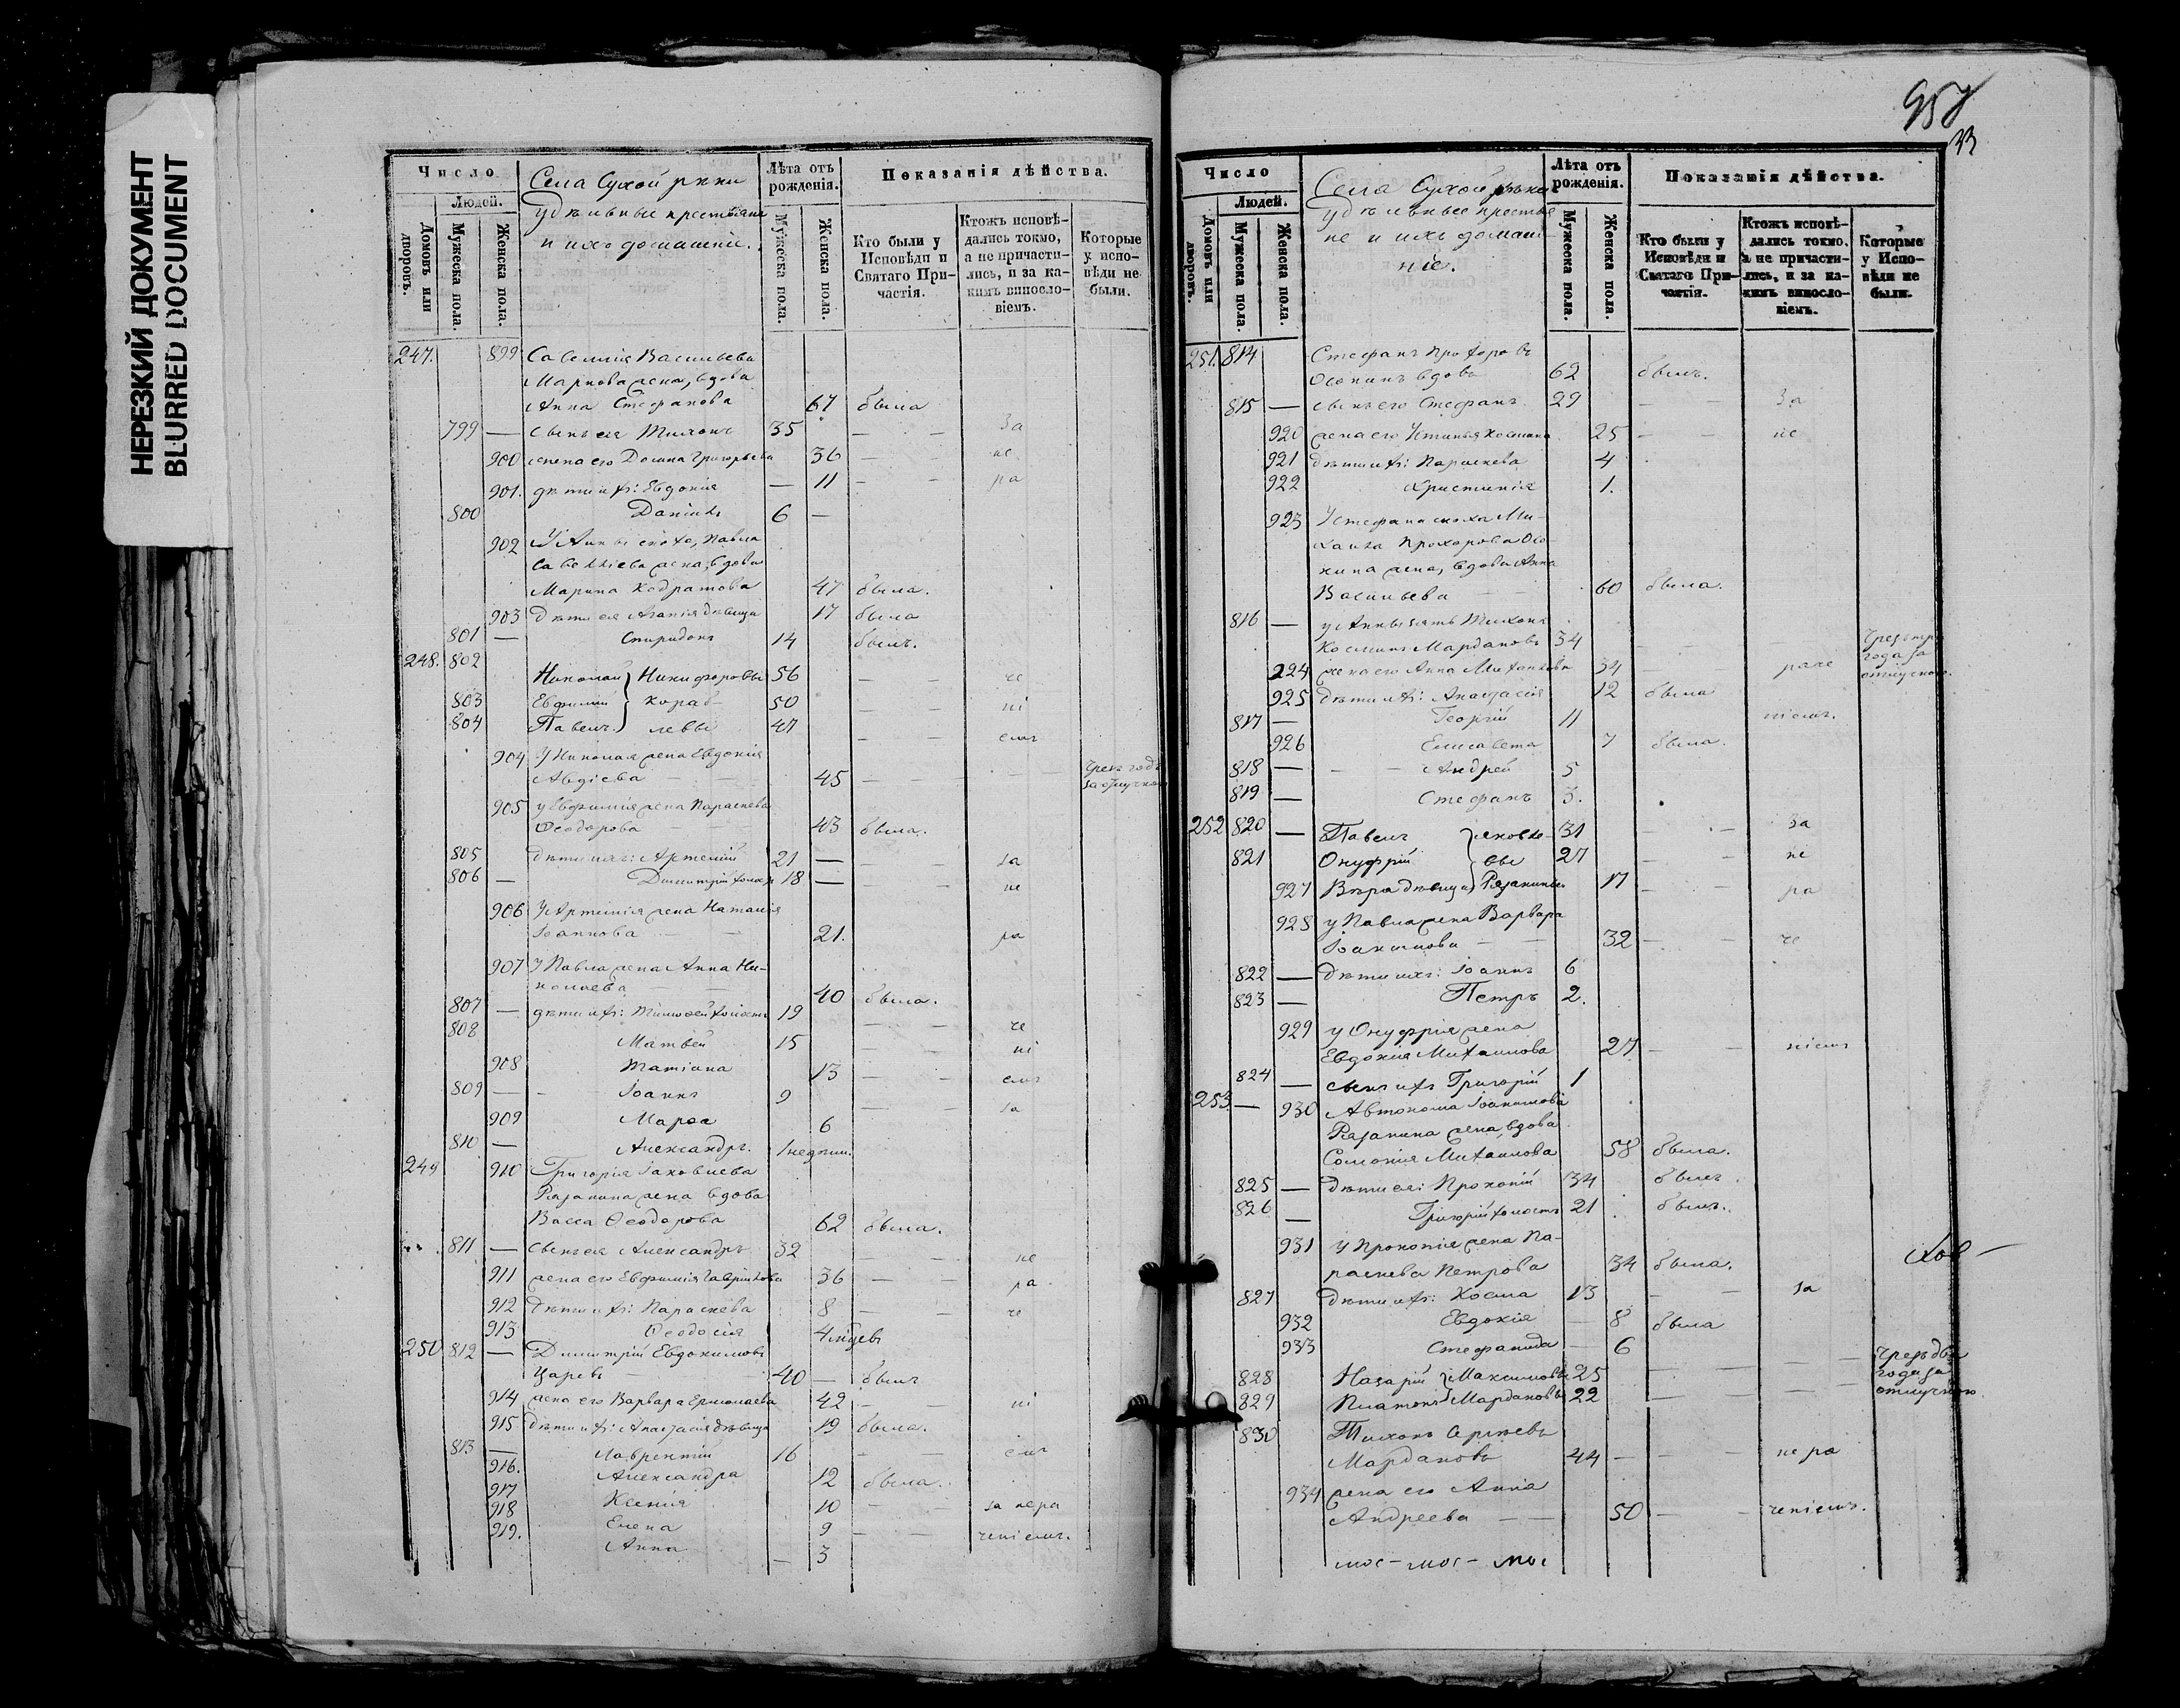 НЕРЕЗКИЙ ДОКУМЕНТ
BLURRED DOCUMENT
Число
Людей.
Домовъ или дворовъ.
Мужеска пола.
Женска пола.
Села Сухой рѣки
удѣльные крестьяне
и ихъ домашніе.
Лѣта отъ рожденія.
Мужеска пола.
Женска пола.
Показанія дѣйства.
Кто были у Исповѣди и Святаго Причастія.
Ктожъ исповѣдались токмо, а не причастились, и за какимъ винословіемъ.
Которые у исповѣди не были.
247. 899 Савелія Васильева
Маркова жена, вдова
Анна Стефанова 67 была
799 — сынъ ея Тихонъ 35 — — За
900 жена его Домна Григорьева 36 — не
901. дѣти ихъ: Евдокія — 11 — - ра
800 Даніилъ 6 —
902 У Анны сноха, Павла
Савеліева жена, вдова
Марина Кодратова 47 была.
903 Дѣти ея Агапія дѣвица 17 была
801 — Спиридонъ 14 былъ.
248. 802 Николай Никифоровы 56 — — че
803 Евфимій Корав- 50 — — ні
804 Павелъ левы 47 — — емъ
904 У Николая жена Евдокія
Авдіева — — 45 — — — Чрезъ годъ за отлучкою
905 у Евфимія жена Параскева
Ѳеодорова — — 43 была.
805 дѣти ихъ: Артемій 21 — — — за
806 — Димитрій холост 18 — — — не
906 У Артемія жена Наталія
Іоаннова — — 21. ра
907 У Павла жена Анна Ни-
колаева — — 40 была.
807 — дѣти ихъ: Тимоѳей холостъ 19 — — че
808 Матвѣй 15 — — ні
908 Татіана 13 — — емъ
809 — - Іоаннъ 9 — — за
909 Марѳа 6
810 — Александръ. 1 недѣли.
249 910 Григорія Іаковлева
Рязанина жена вдова
Васса Ѳеодорова 62 была.
811 — сынъ ея Александръ 32 — — не
911 жена его Евфимія Гаврилова 36 — — ра
912 Дѣти ихъ: Параскева 8 — — че
913 Ѳеодосія 4 мѣсев
250 812 — Димитрій Евдокимовъ
Царевъ — — 40 — былъ
914 жена его Варвара Ермолаева 42 - — ні
915 дѣти ихъ: Анастасія дѣвица 19 была.
813 — Лаврентій 16 - — емъ
916. Александра 12 была.
917 Ксенія 10 — — за нера
918 Елена 9 — — ченіемъ.
919. Анна — 3
957
33
Число
Людей.
Домовъ или дворовъ.
Мужеска пола.
Женска пола.
Села Сухой рѣки
удѣльные крестья
не и ихъ домаш
ніе.
Лѣта отъ рожденія.
Мужеска пола.
Женска пола.
Показанія дѣйства.
Кто были у Исповѣди и Святаго Причастія.
Ктожъ исповѣдались токмо, а не причастились, и за какимъ винословіемъ.
Которые у Исповѣди не были.
251. 814 Стефанъ Прохоровъ
Осокинъ вдовъ 62 былъ.
815 — сынъ его Стефанъ 29 — — За
920 жена его Устинья Космина 25 — — не
921 дѣти ихъ: Параскева 4
922 Христинія 1.
923 У Стефана сноха Ми-
хаила Прохорова Осо-
кина жена, вдова Анна
Васильева — — 60 была.
816 — у Анны зять Тихонъ
Косминъ Мардановъ 34 — — Чрезъ три года за отлучкою.
924 жена его Анна Михаилова 34 — — раче
925 дѣти ихъ: Анастасія 12 была
817 — Георгій 11 ніемъ.
926 Елисавета 7 была.
818 — — - Андрей 5
819 — Стефанъ 3.
252 820 — Павелъ Іаковле- 31 — — За
821 Онуфрій вы 27 — — не
927 Вѣра дѣвица Рязанины 17 — — ра
928 у Павла жена Варвара
Іоакимова — — 32 — — че
822 — дѣти ихъ: Іоаннъ 6
823 — Петръ 2.
929 у Онуфрія жена
Евдокія Михаилова 27 — — ніемъ
824 — сынъ ихъ Григорій 1
253. — 930 Автонома Іоакимова
Рязанина жена, вдова
Соломія Михаилова 58 была.
825 — Дѣти ея: Прокопій 34 былъ.
826 — Григорій холостъ 21 былъ.
931 у Прокопія жена Па-
раскева Петрова 34 была.
827 дѣти ихъ: Косма 13 — — за
932 Евдокія — 8 была
933 Стефанида — 6
828 Назарій Максимовы 25 — — — Чрезъ два года за отлучкою
829 Платонъ Мардановы 22 — — —
830 Тихонъ Сергѣевъ
Мардановъ 44 — — не ра
934 жена его Анна
Андреева — — 50 — - ченіемъ.